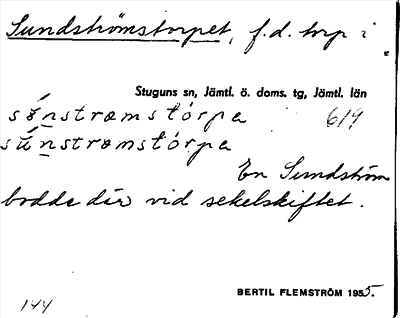 Sundströmstorpet, f.d. torp i
Stuguns sn, Jämtl. ö. doms. tg, Jämtl. län
sǿnstrømstórpa 619
sústrømstórpa
En Sundström
bodde där vid sekelskiftet.
BERTIL FLEMSTRÖM 1955.
144